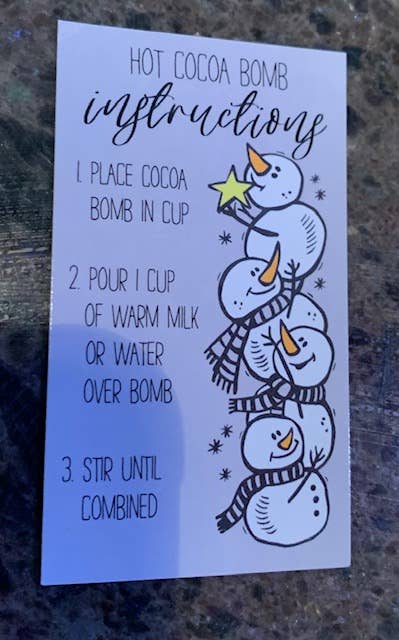 HOT COCOA BOMB
instructions
1. PLACE COCOA
BOMB IN CUP
2. POUR 1 CUP
OF WARM MILK
OR WATER
OVER BOMB
3. STIR UNTIL
COMBINED